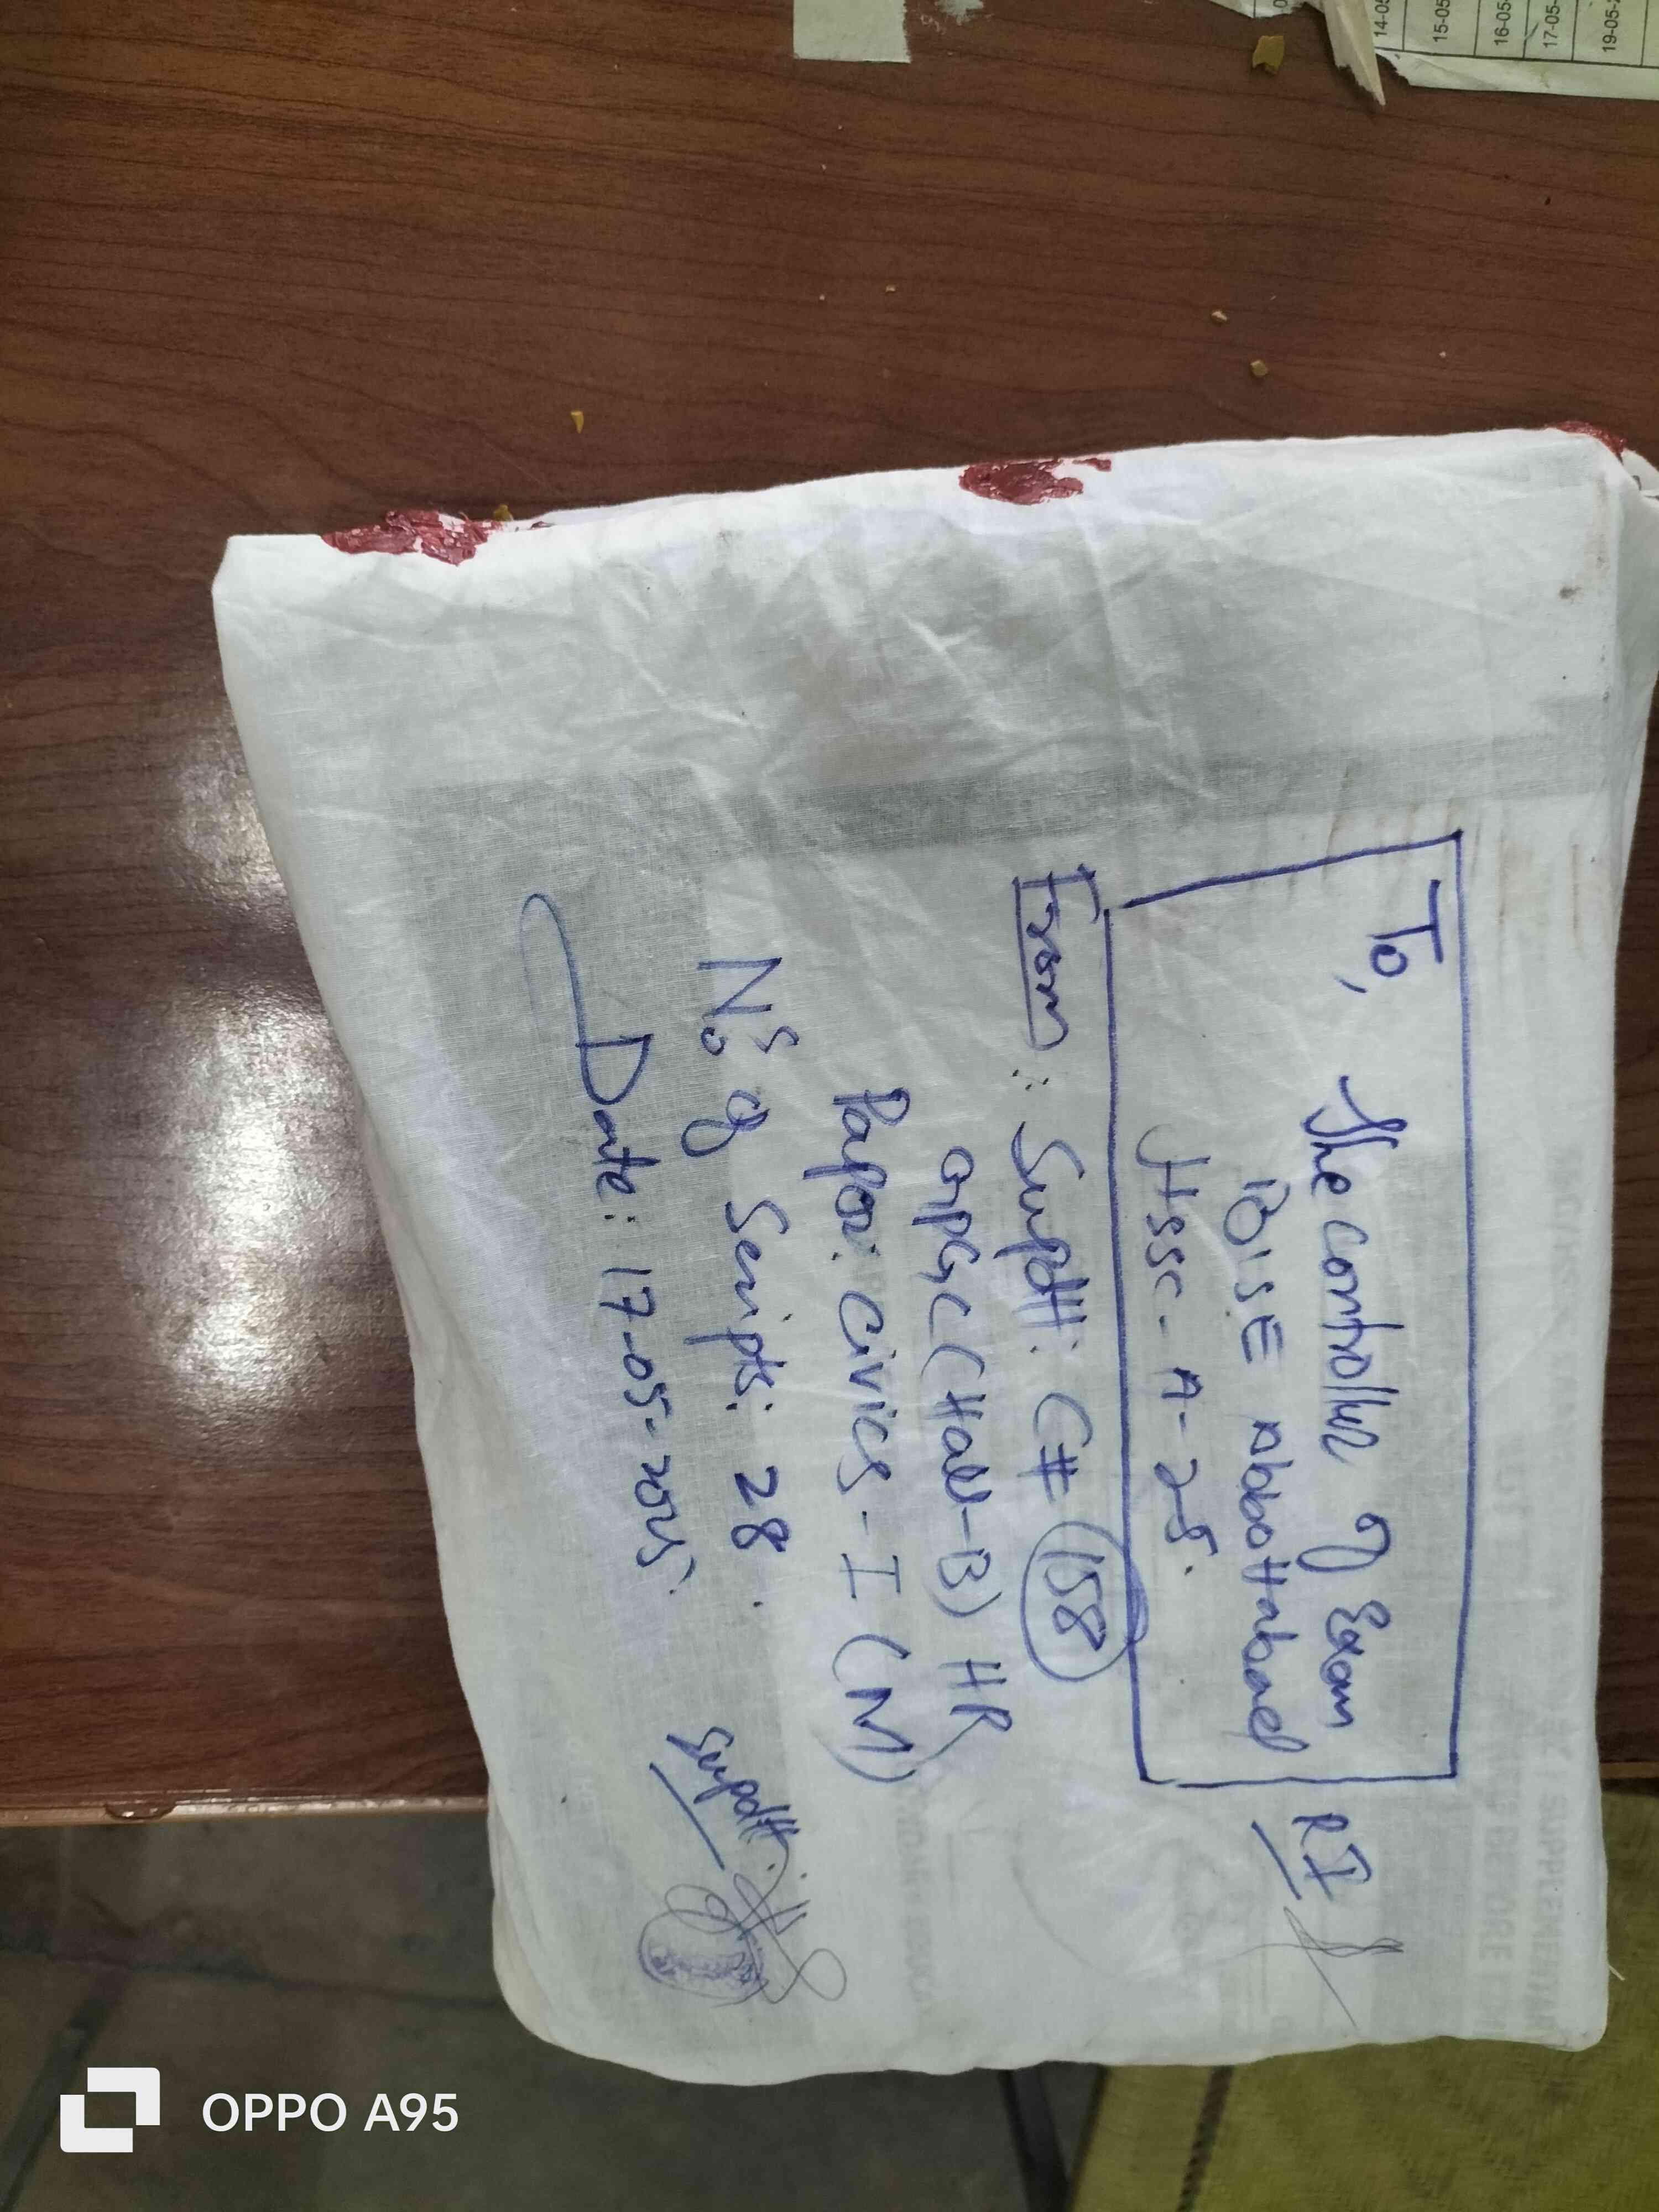 To, The Controller of Exam
BISE Abbottabad
HSSC-A-25.
RI
From: Supdtt: C# 158
GPGC (Hall-B) HR
Paper: Civics-I (M)
Nos of Scripts: 28.
Date: 17-05-2025
Supdtt:
14-05
15-05
16-05-
17-05-
19-05-2
OPPO A95